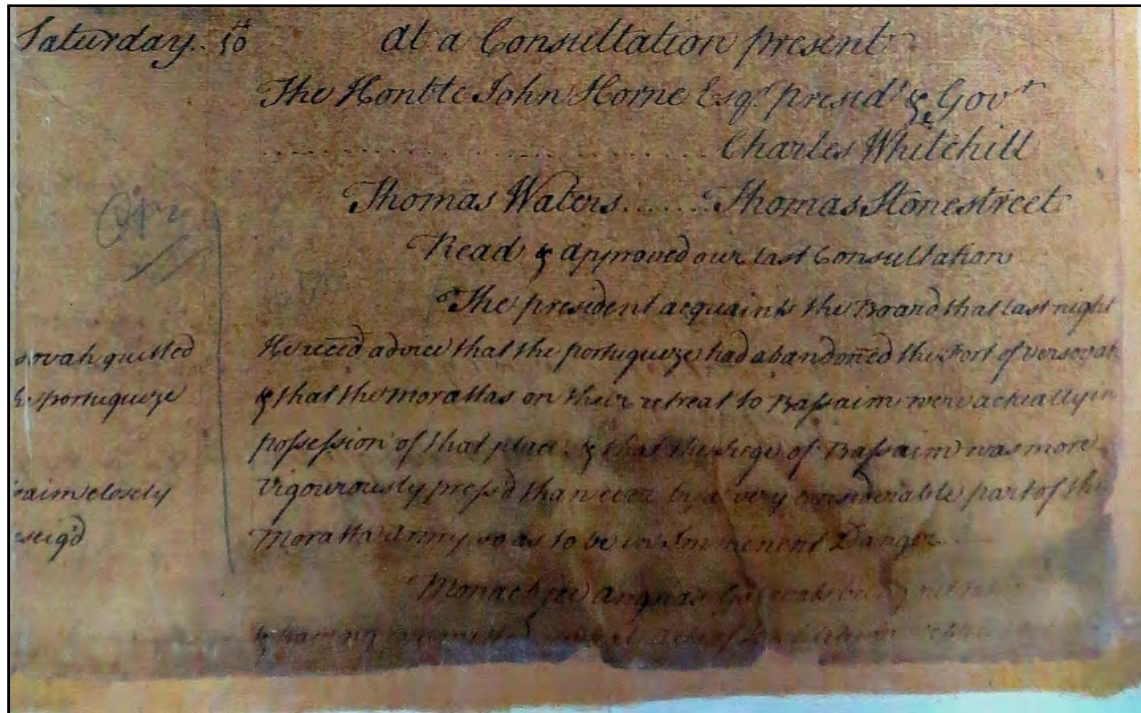 Saturday.. 10th at a Consultation present
The Honble John Horne Esqr. presidt. & Govr.
Charles Whitehill
Thomas Waters....... Thomas Stonestreet
Read & approved our last Consultation
The president acquaints the Board that last night
sovah quitted He reced advice that the portugueze had abandoned the Fort of versovah
portugueze & that the morattas on their retreat to Bassaim were actually in
possession of that place & that the siege of Bassaim was more
saim closely Vigourously press'd than ever by a very considerable part of the
seig'd moratta Army so as to be in Immenent Danger
Monackjee angria's
& having